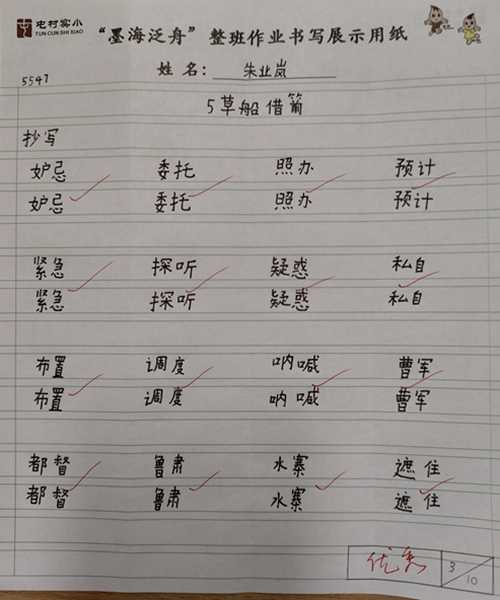 屯村实小
TUN CUN SHI XIAO
“墨海泛舟”整班作业书写展示用纸
姓名： 朱业岚
5547
5草船借箭
抄写
妒忌 委托 照办 预计
妒忌 委托 照办 预计
紧急 探听 疑惑 私自
紧急 探听 疑惑 私自
布置 调度 呐喊 曹军
布置 调度 呐喊 曹军
都督 鲁肃 水寨 遮住
都督 鲁肃 水寨 遮住
优秀 3/10